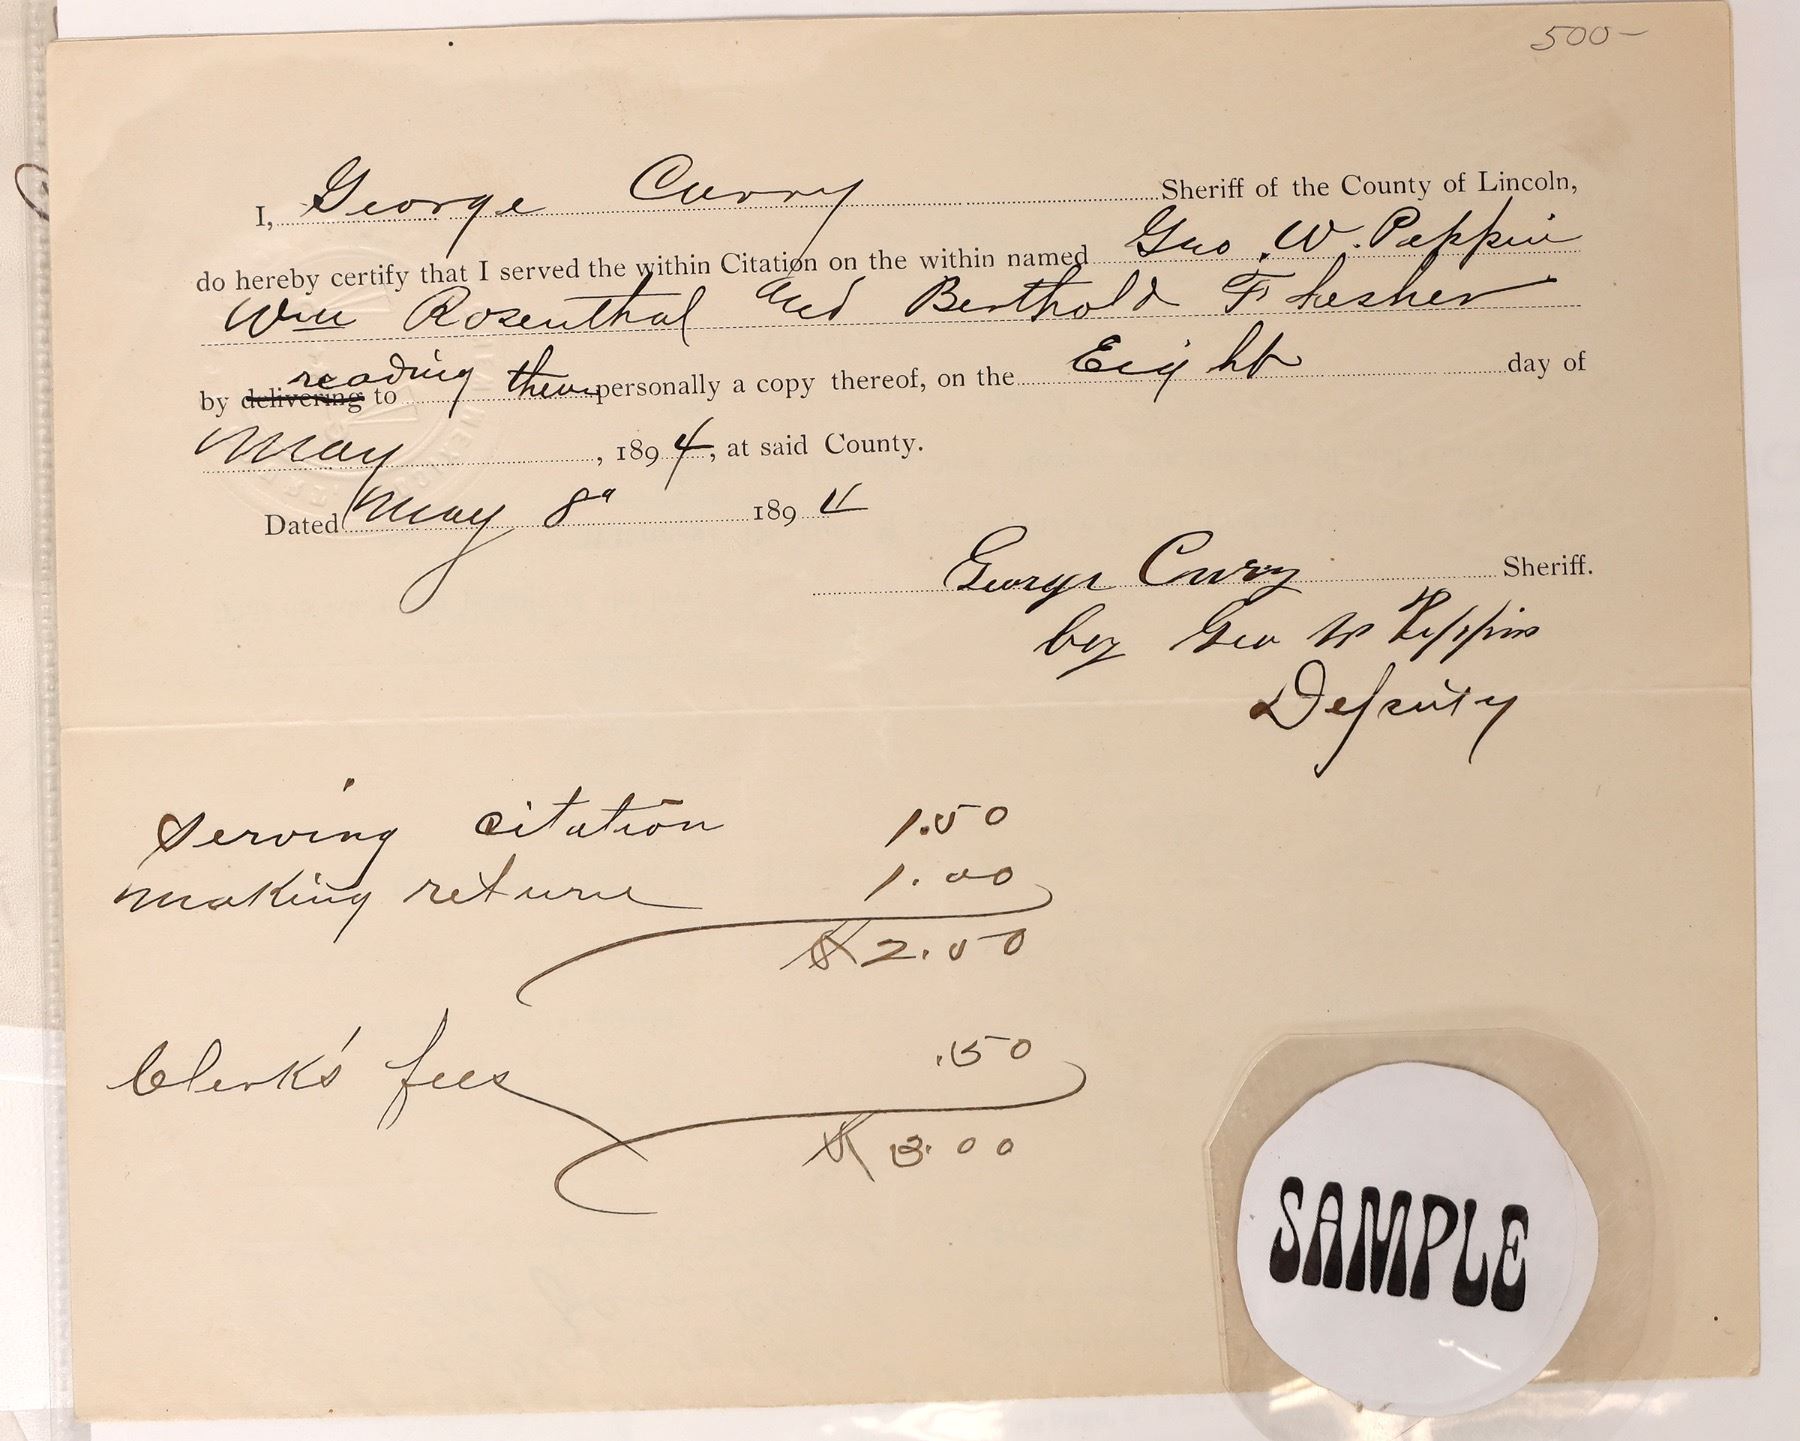 500-
I, George Curry Sheriff of the County of Lincoln,
do hereby certify that I served the within Citation on the within named Geo. W. Peppin
Wm Rosenthal and Berthold
reading
by delivering to them personally a copy thereof, on the Eight day of
May, 1894, at said County.
Dated May 8" 1894
George Curry Sheriff.
by Geo W Peppin
Deputy
Serving citation 1.50
making return 1.00
$2.50
Clerk's fees .50
$3.00
SAMPLE